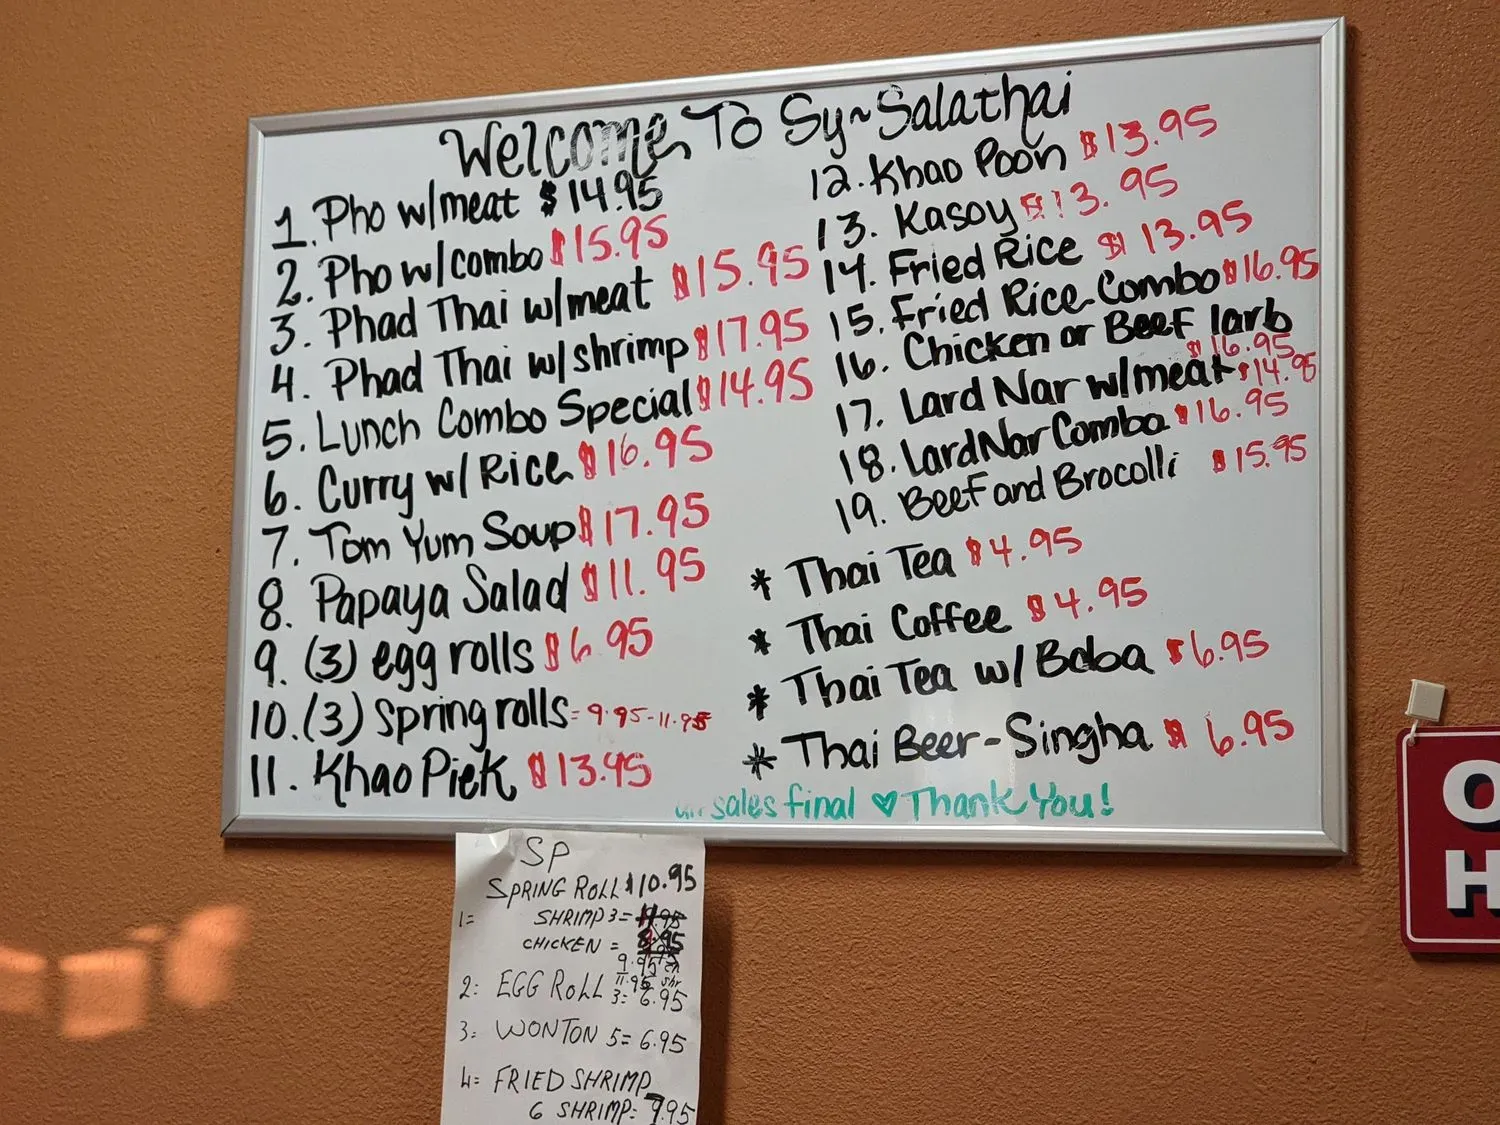 Welcome To Sy~Salathai
1. Pho w/meat $14.95
2. Pho w/combo $15.95
3. Phad Thai w/meat $15.95
4. Phad Thai w/shrimp $17.95
5. Lunch Combo Special $14.95
6. Curry w/ Rice $16.95
7. Tom Yum Soup $17.95
8. Papaya Salad $11.95
9. (3) egg rolls $6.95
10. (3) spring rolls = 9.95-11.95
11. Khao Piek $13.95
12. Khao Poon $13.95
13. Kasoy $13.95
14. Fried Rice $13.95
15. Fried Rice Combo $16.95
16. Chicken or Beef larb
$16.95
17. Lard Nar w/meat $14.95
18. Lard Nar Combo $16.95
19. Beef and Brocolli $15.95
* Thai Tea $4.95
* Thai Coffee $4.95
* Thai Tea w/ Boba $6.95
* Thai Beer-Singha $6.95
all sales final ♥ Thank You!
SP
SPRING ROLL $10.95
1= SHRIMP 3= 11.95
CHICKEN = 8.95
9.95 cn
11.95 shr
2: EGG ROLL 3= 6.95
3: WONTON 5= 6.95
4= FRIED SHRIMP
6 SHRIMP= 7.95
O
H